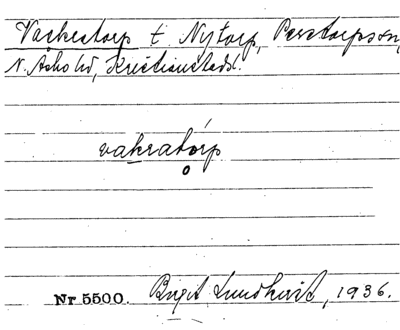 Vackratorp t. Nytorp, Perstorps sn,
N. Åsbo hd, Kristianstads l.
vakratórp
Nr. 5500. Birgit Lundkvist, 1936.